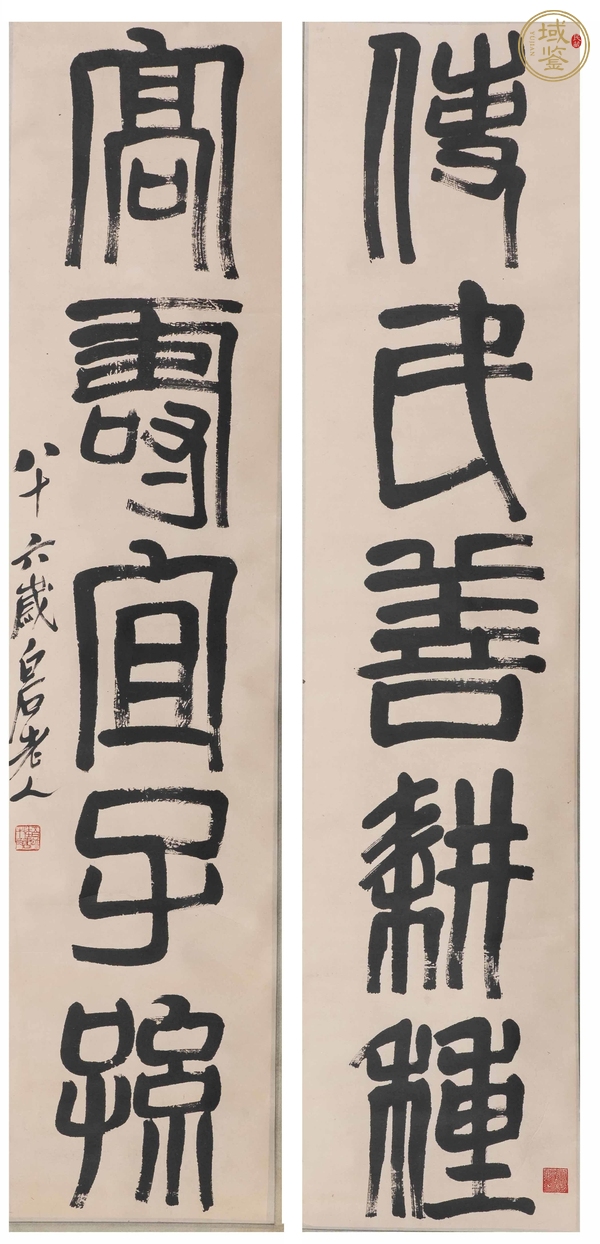 使民善耕種
高壽宜子孫
八十六歲白石老人
域鉴
YUJIAN